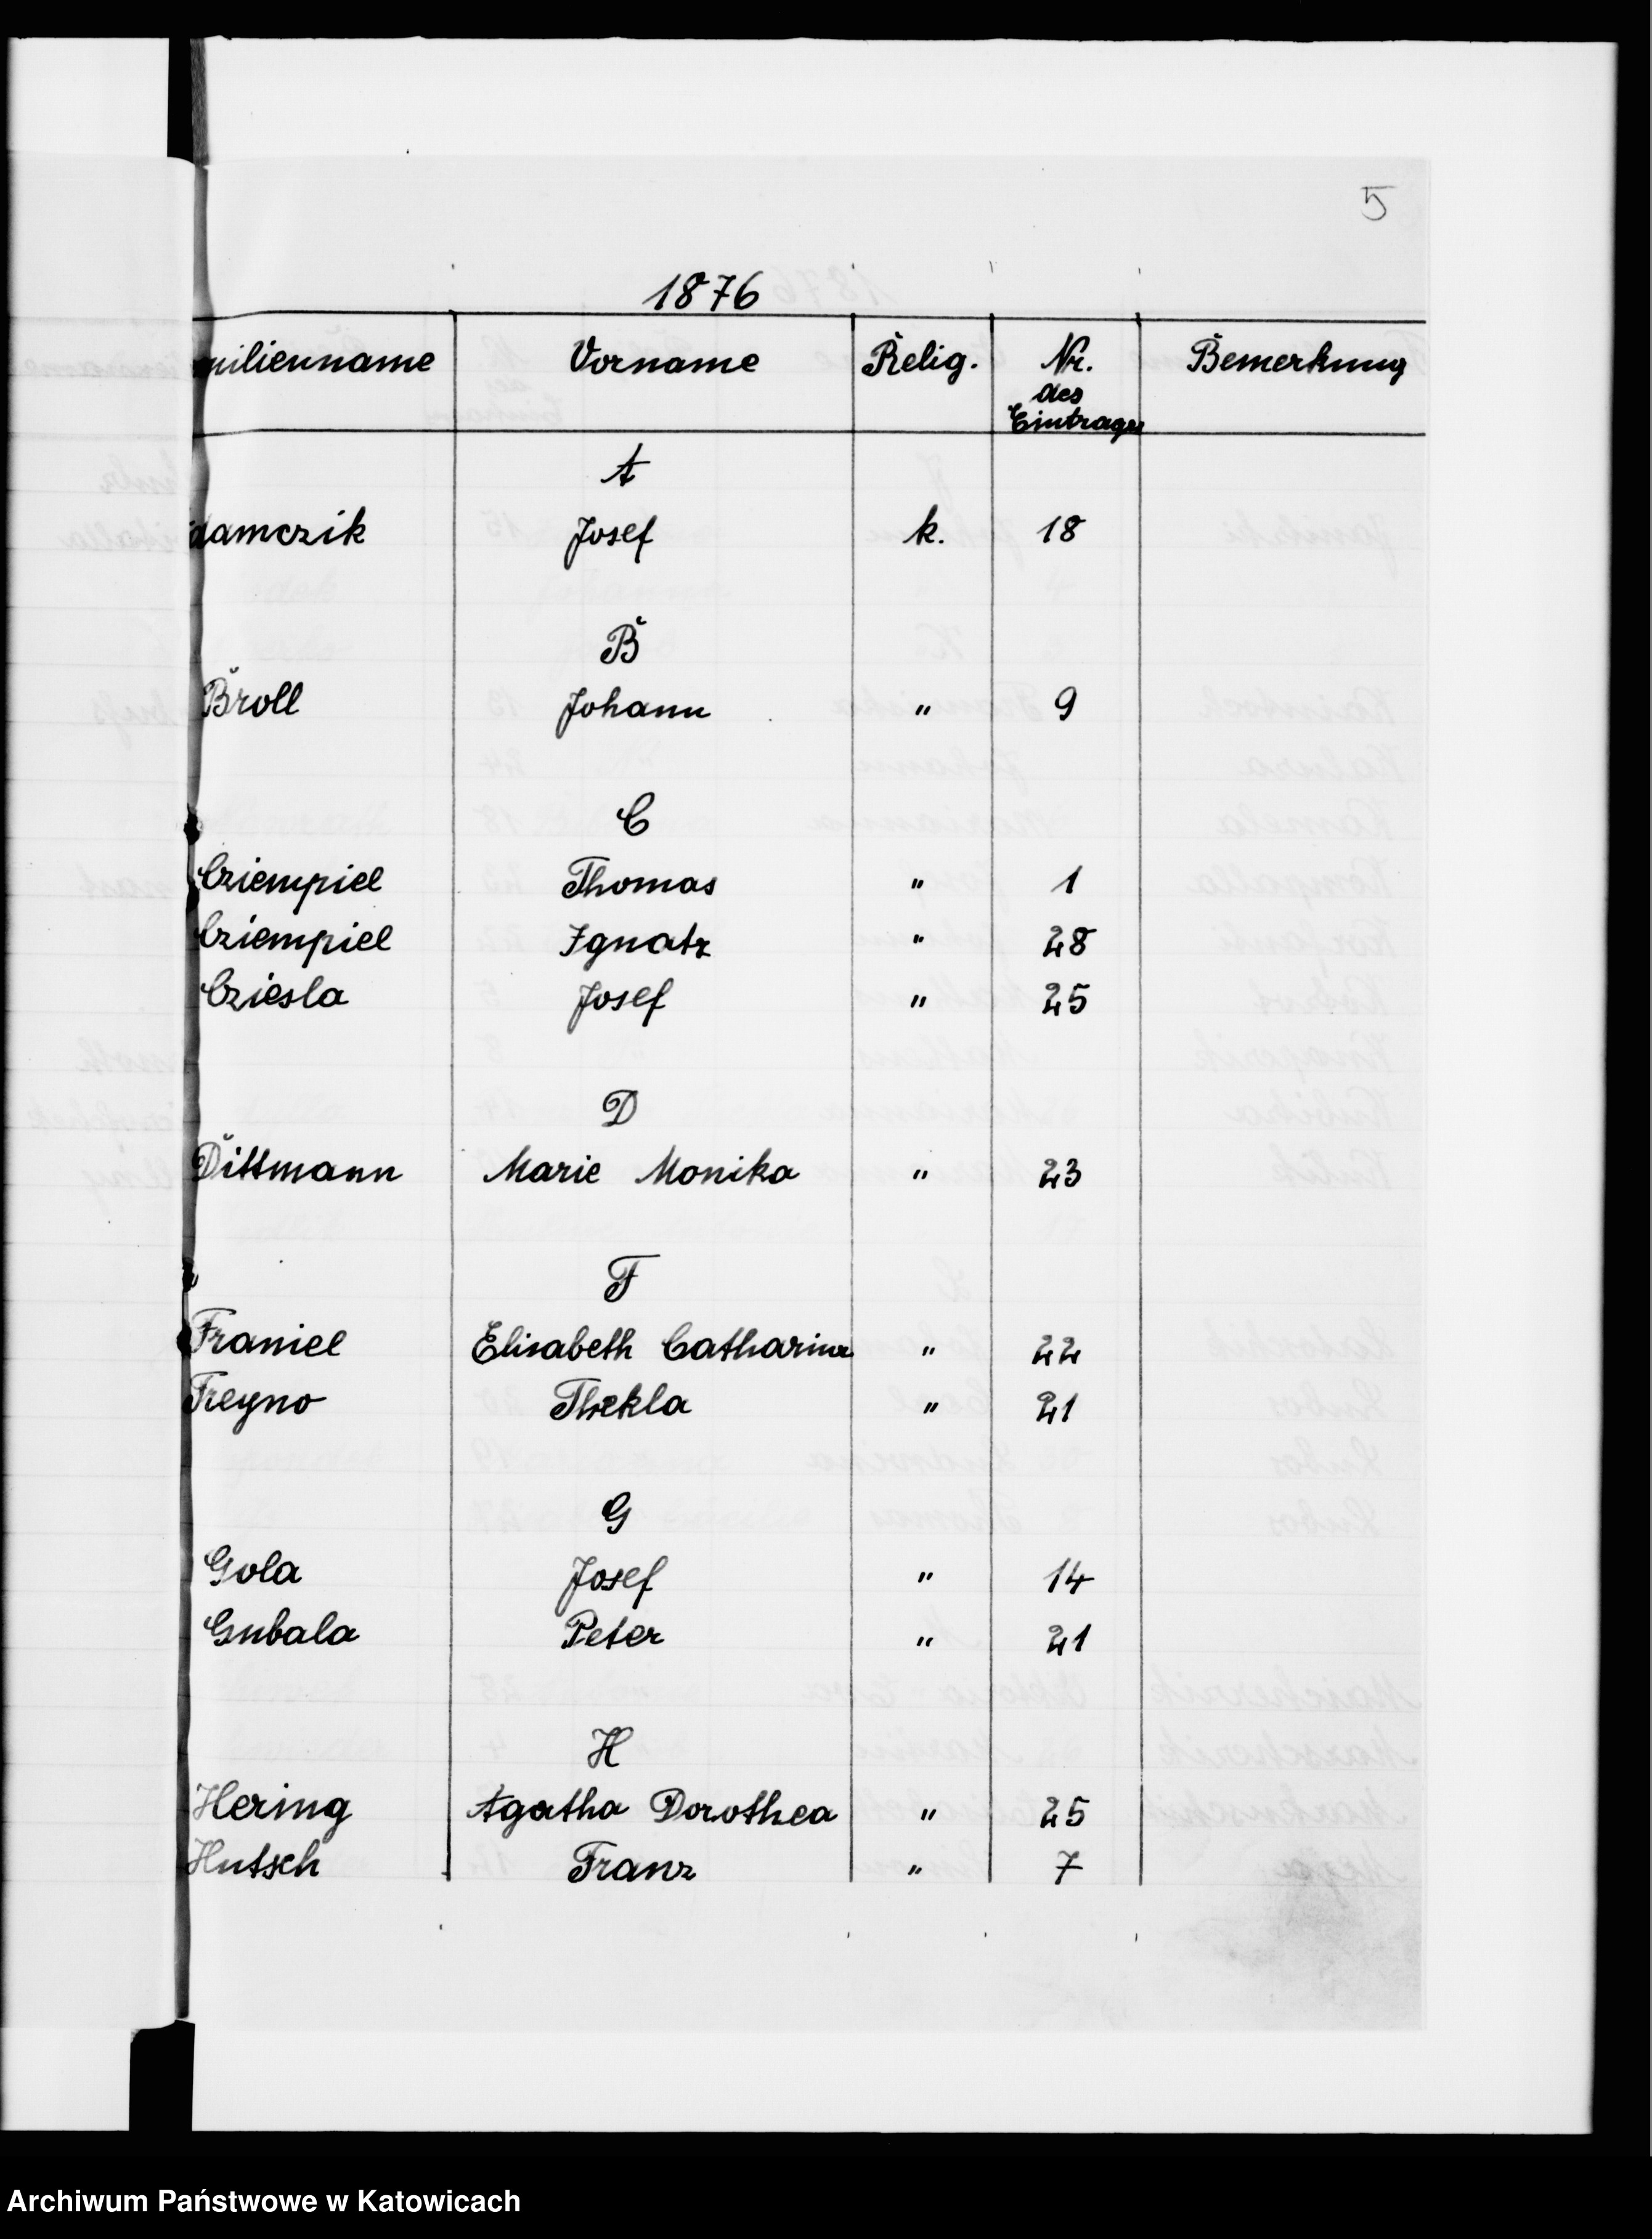 5
1876
milienname Vorname Relig. Nr. des Eintrages Bemerkung
A
damczik Josef k. 18
B
Broll Johann " 9
C
Cziempiel Thomas " 1
Cziempiel Ignatz " 28
Cziesla Josef " 25
D
Dittmann Marie Monika " 23
F
Franiel Elisabeth Catharina " 22
Freyno Thekla " 21
G
Gola Josef " 14
Gubala Peter " 21
H
Hering Agatha Dorothea " 25
Hutsch Franz " 7
Archiwum Państwowe w Katowicach